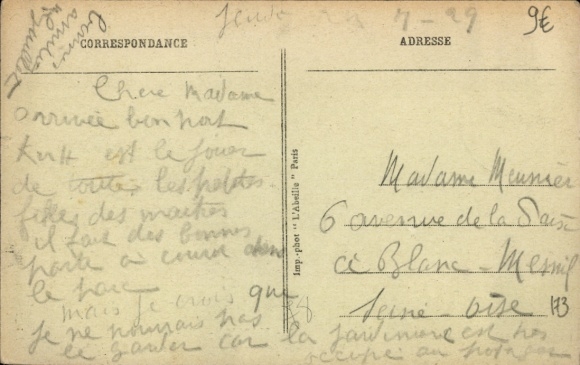 Jeudi 7-29
9€
CORRESPONDANCE
ADRESSE
Chere Madame
arrivée bon port
est le jouer
de toute les petites
filles des maitres
il fait des bonnes
partie a courir dans
le parc
mais je crois que
je ne pourrais pas
le garder car la jardiniere est tres
occupée au potager
Imp.-phot " L'Abeille " Paris
Madame Meunier
6 avenue de la
Blanc-Mesnil
Seine-oise